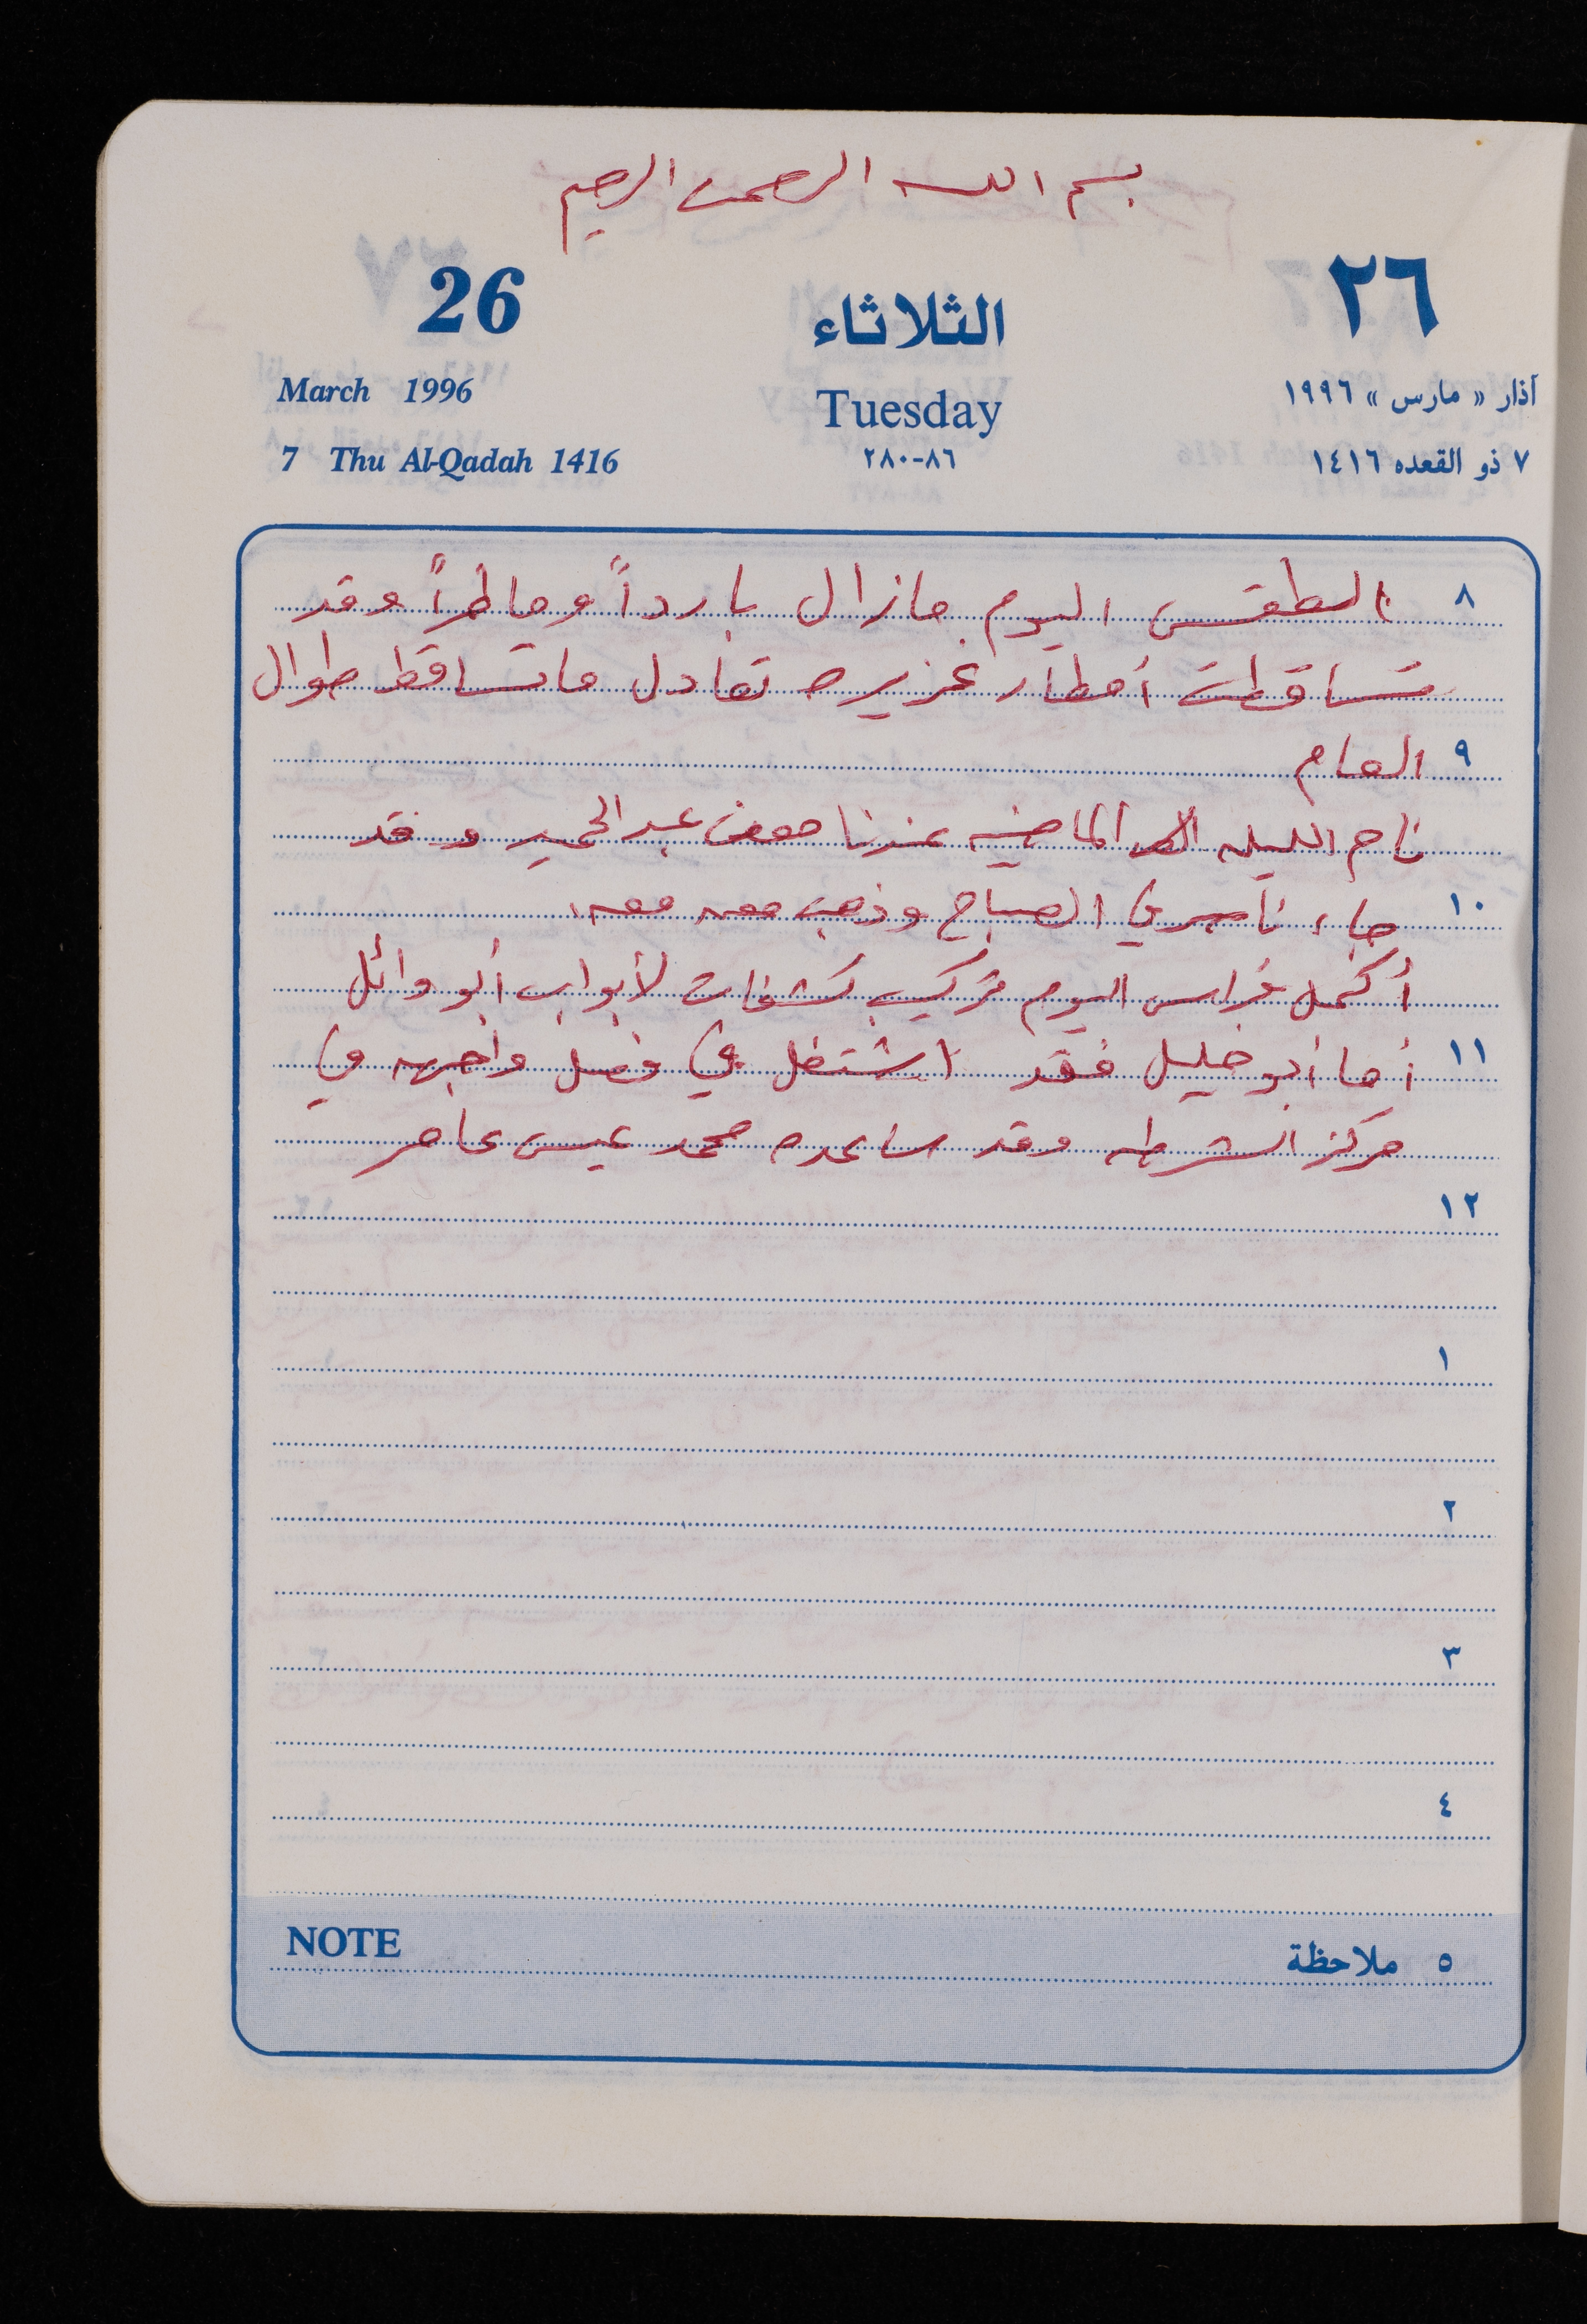 بسم الله الرحمن الرحيم
26 الثلاثاء ٢٦
March 1996 Tuesday آذار « مارس » ١٩٩٦
7 Thu Al-Qadah 1416 ٨٦-٢٨٠ ٧ ذو القعده ١٤١٦
٨ الطقس اليوم مازال بارداً وماطراً وقد
تساقطت أمطار غزيره تعادل ماتساقط طوال
٩ العام
نام الليله الماضيه عندنا معن عبد الحميد وقد
١٠ جاء تامر في الصباح وذهب معه
أكمل فراس اليوم تركيب كشفات لأبواب أبو وائل
١١ أما أبو خليل فقد اشتغل في فصل واجهه في
مركز الشرطه وقد ساعده محمد عيسى عامر
١٢
١
٢
٣
٤
NOTE ٥ ملاحظة